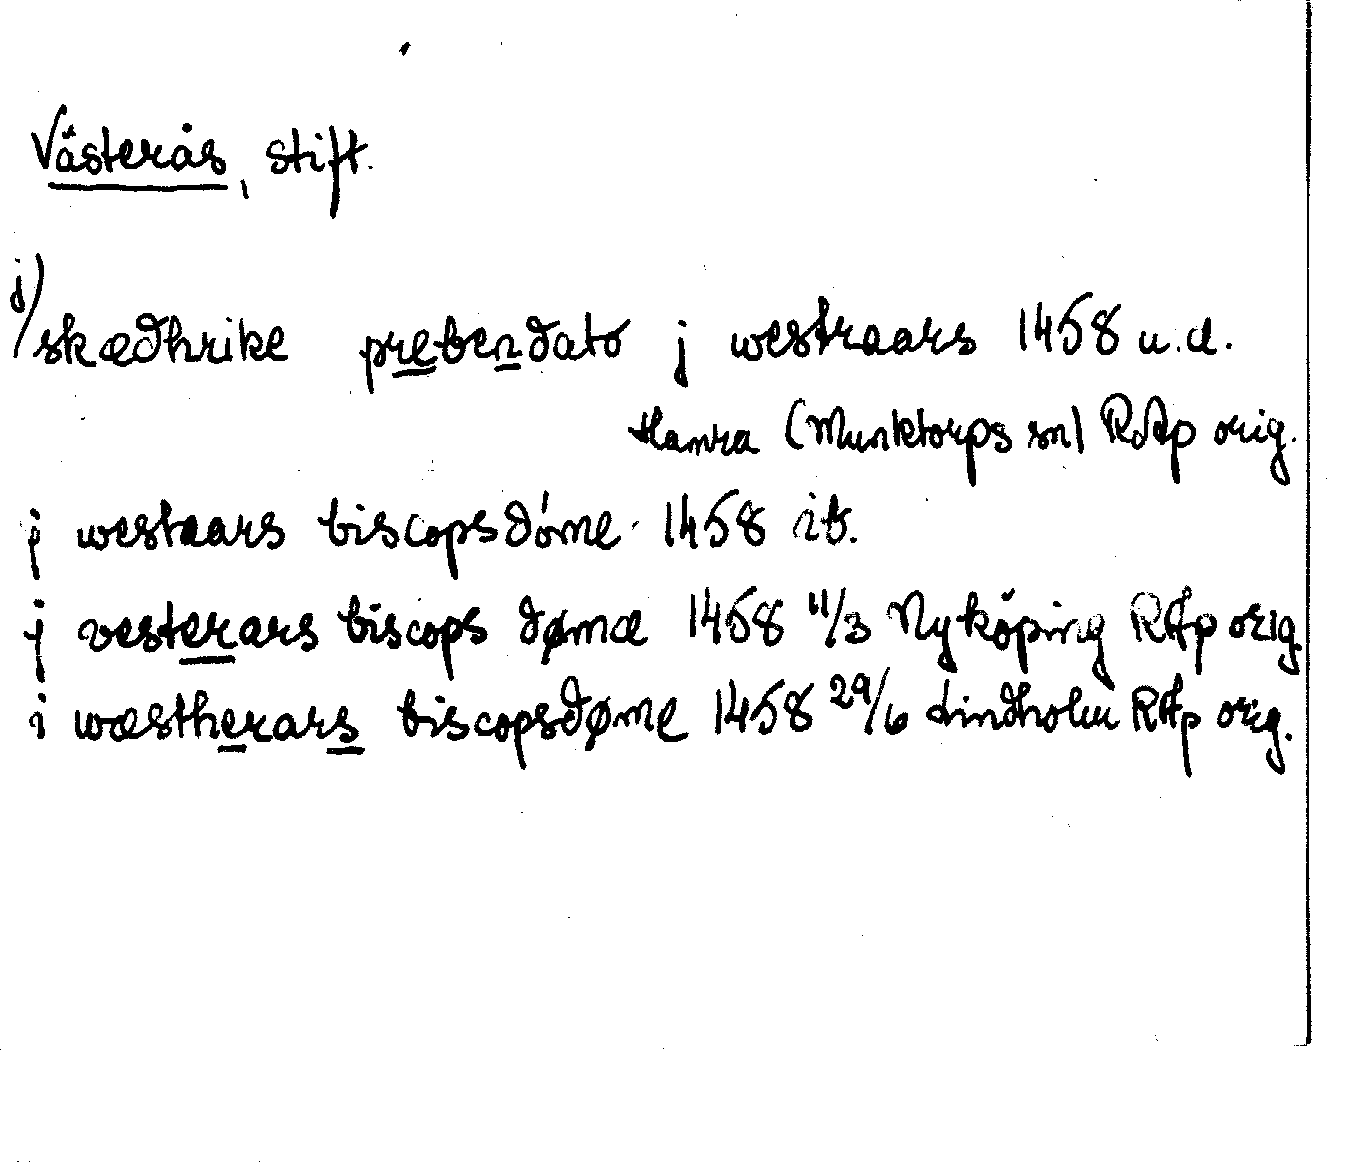 Västerås, stift.
j/skædhrike prebendato j westraars 1458 u.d.
Hamra (Munktorps sn) RAp orig.
j westraars biscopsdóme 1458 ib.
j vesterars biscops dømæ 1458 11/3 Nyköping RAp orig.
i wæstherars biscopsdøme 1458 29/6 Lindholm RAp orig.